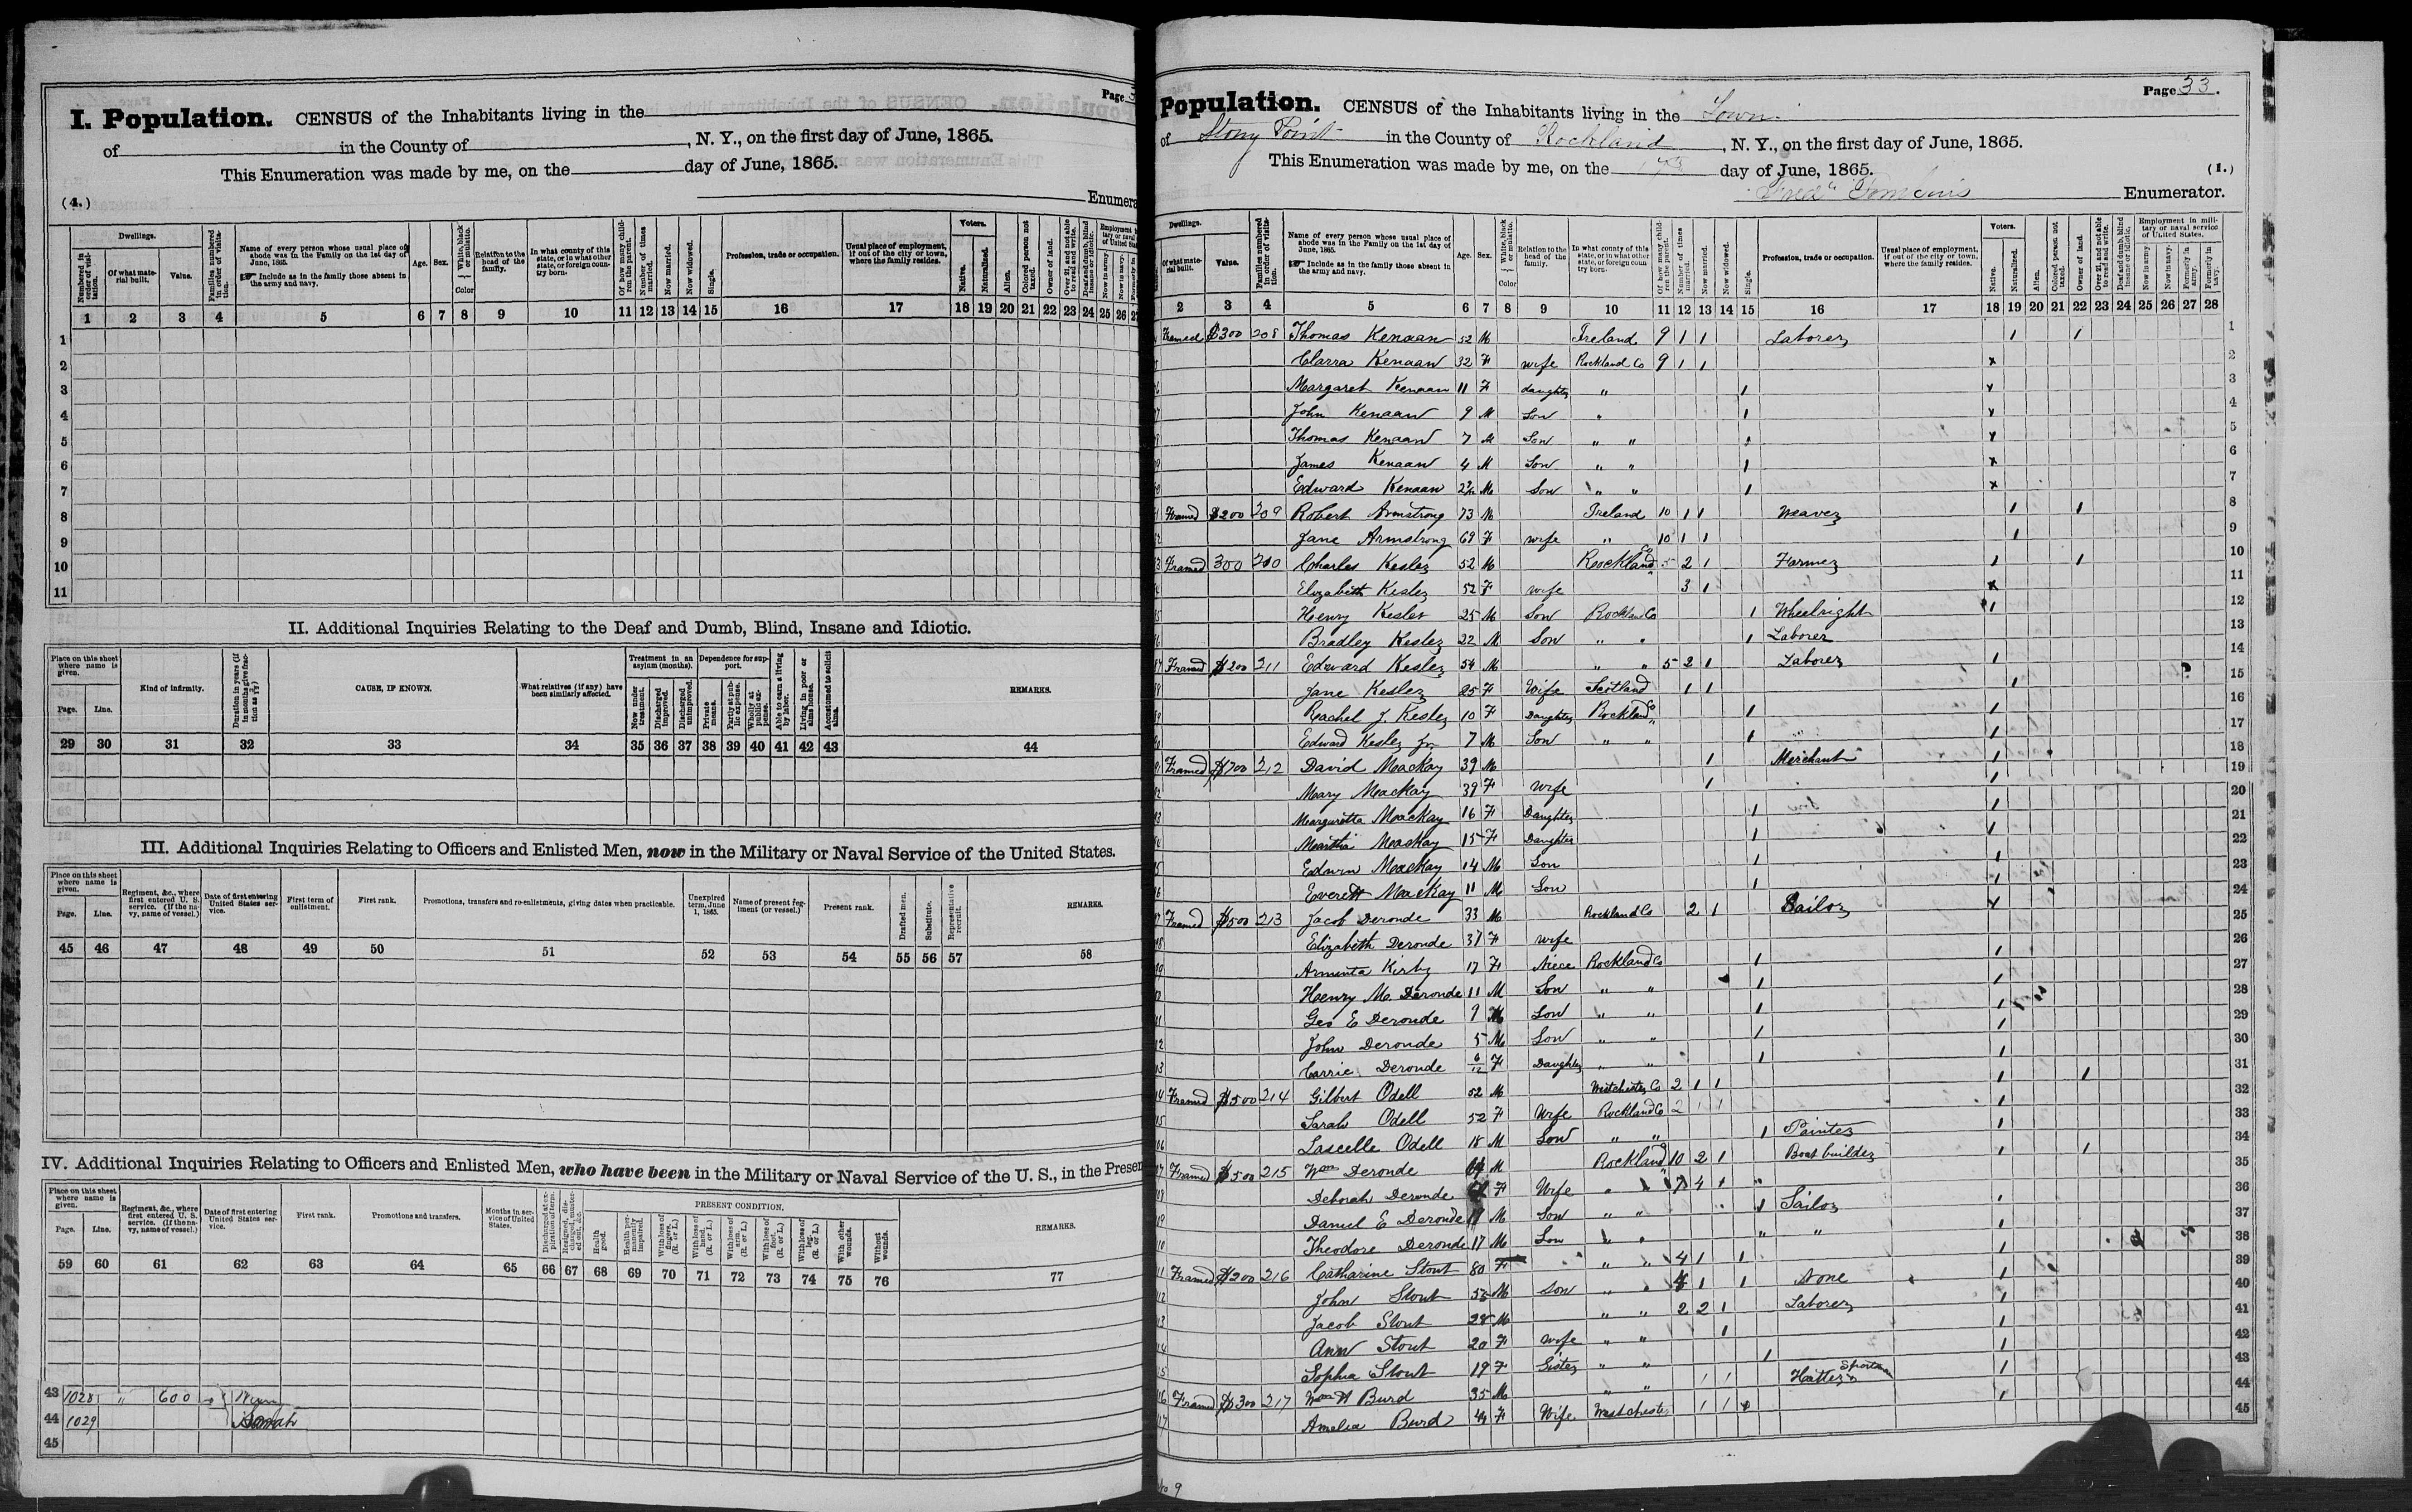 Page 3
I. Population. CENSUS of the Inhabitants living in the
of in the County of , N. Y., on the first day of June, 1865.
This Enumeration was made by me, on the day of June, 1865.
(4.) Enumera
Dwellings. Voters.
Numbered in order of visitation. Of what material built. Value. Families numbered in order of visitation. Name of every person whose usual place of abode was in the Family on the 1st day of June, 1865. Include as in the family those absent in the army and navy. Age. Sex. White, black or mulatto. Color Relation to the head of the family. In what county of this state, or in what other state, or foreign country born. Of how many children the parent. Number of times married. Now married. Now widowed. Single. Profession, trade or occupation. Usual place of employment, if out of the city or town, where the family resides. Native. Naturalized. Alien. Colored person not taxed. Owner of land. Over 21, and not able to read and write. Deaf and dumb, blind insane or idiotic. Now in army. Now in navy.
1 2 3 4 5 6 7 8 9 10 11 12 13 14 15 16 17 18 19 20 21 22 23 24 25 26 27
1
2
3
4
5
6
7
8
9
10
11
II. Additional Inquiries Relating to the Deaf and Dumb, Blind, Insane and Idiotic.
Place on this sheet where name is given. Treatment in an asylum (months). Dependence for support.
Page. Line. Kind of infirmity. CAUSE, IF KNOWN. What relatives (if any) have been similarly affected. Now under treatment. Discharged improved. Discharged unimproved. Private means. Partly at public expense. Wholly at public expense. Able to earn a living by labor. Living in poor or alms house. Accustomed to solicit alms. REMARKS.
29 30 31 32 33 34 35 36 37 38 39 40 41 42 43 44
III. Additional Inquiries Relating to Officers and Enlisted Men, now in the Military or Naval Service of the United States.
Place on this sheet where name is given.
Page. Line. Regiment, &c., where first entered U. S. service. (If the navy, name of vessel.) Date of first entering United States service. First term of enlistment. First rank. Promotions, transfers and re-enlistments, giving dates when practicable. Unexpired term, June 1, 1865. Name of present regiment (or vessel.) Present rank. Drafted men. Substitute. Representative recruit. REMARKS.
45 46 47 48 49 50 51 52 53 54 55 56 57 58
IV. Additional Inquiries Relating to Officers and Enlisted Men, who have been in the Military or Naval Service of the U. S., in the Presen
Place on this sheet where name is given. PRESENT CONDITION.
Page. Line. Regiment, &c., where first entered U. S. service. (If the navy, name of vessel.) Date of first entering United States service. First rank. Promotions and transfers. Months in service of United States. Health good. Health permanently impaired. With loss of fingers. (R. or L.) With loss of hand. (R. or L.) With loss of arm. (R. or L.) With loss of foot. (R. or L.) With loss of leg. (R. or L.) With other wounds. Without wounds. REMARKS.
59 60 61 62 63 64 65 66 67 68 69 70 71 72 73 74 75 76 77
43 1028 " 600
44 1029 Sarah
45
Page 33.
Population. CENSUS of the Inhabitants living in the Town
of Stony Point in the County of Rockland, N. Y., on the first day of June, 1865.
This Enumeration was made by me, on the 17th day of June, 1865. (1.)
Enumerator.
Dwellings. Voters. Employment in military or naval service of United States.
Of what material built. Value. Families numbered in order of visitation. Name of every person whose usual place of abode was in the Family on the 1st day of June, 1865. Include as in the family those absent in the army and navy. Age. Sex. White, black or mulatto. Color Relation to the head of the family. In what county of this state, or in what other state, or foreign country born. Of how many children the parent. Number of times married. Now married. Now widowed. Single. Profession, trade or occupation. Usual place of employment, if out of the city or town, where the family resides. Native. Naturalized. Alien. Colored person not taxed. Owner of land. Over 21, and not able to read and write. Deaf and dumb, blind insane or idiotic. Now in army. Now in navy. Formerly in army. Formerly in navy.
2 3 4 5 6 7 8 9 10 11 12 13 14 15 16 17 18 19 20 21 22 23 24 25 26 27 28
Framed $300 208 Thomas Kenaan 52 M Ireland 9 1 1 Laborer 1 1 1
Clarra Kenaan 32 F wife Rockland Co 9 1 1 x 2
Margaret Kenaan 11 F daughter " 1 x 3
John Kenaan 9 M Son " 1 x 4
Thomas Kenaan 7 M Son " " 1 x 5
James Kenaan 4 M Son " " 1 x 6
Edward Kenaan M Son " " 1 x 7
Framed $200 209 Robert Armstrong 73 M Ireland 10 1 1 Weaver 1 1 8
Jane Armstrong 69 F wife " 10 1 1 1 9
Framed 300 210 Charles Kesler 52 M Rockland Co 5 2 1 Farmer 1 1 10
Elizabeth Kesler 52 F wife 3 1 x 11
Henry Kesler 25 M Son Rocklan Co 1 Wheelright 1 12
Bradley Kesler 22 M Son " " 1 Laborer 13
Framed $200 211 Edward Kesler 54 M " " 5 2 1 Laborer 1 14
Jane Kesler 25 F Wife Scotland 1 1 1 15
Rachel J. Kesler 10 F Daughter Rockland Co 1 1 16
Edward Kesler Jr 7 M Son " " 1 1 17
Framed $700 212 David Mackay 39 M 1 Merchant 1 18
Mary Mackay 39 F Wife 1 1 19
Marguretta Mackay 16 F Daughter 1 1 20
Martha Mackay 15 F Daughter 1 1 21
Edwin Mackay 14 M Son 1 1 22
Everett Mackay 11 M Son 1 1 23
Framed $500 213 Jacob Deronde 33 M Rockland Co 2 1 Sailor x 24
Elizabeth Deronde 37 F wife 25
Arminta Kirby 17 F Niece Rockland Co 1 1 26
Henry M. Deronde 11 M Son " " 1 1 27
Geo E Deronde 9 M Son " " 1 1 28
John Deronde 5 M Son " " 1 1 29
Carrie Deronde 6/12 F Daughter " " 1 1 30
Framed $500 214 Gilbert Odell 52 M Westchester Co 2 1 1 1 1 31
Sarah Odell 52 F Wife Rockland Co 2 1 1 1 32
Lascelle Odell 18 M Son " " 1 Painter 1 33
Framed $500 215 Wm Deronde M Rockland 10 2 1 Boat builder 1 1 34
Deborah Deronde F Wife " " 7 4 1 35
Daniel E Deronde M Son " " 1 Sailor 1 36
Theodore Deronde 17 M Son " " " " 1 37
Framed $200 216 Catharine Stout 80 F " " 4 1 1 1 38
John Stout M Son " " 1 1 None 1 39
Jacob Stout 28 M " " 2 2 1 Laborer 1 40
Ann Stout 20 F Wife " " 1 1 41
Sophia Stout 19 F Sister " " 1 1 42
Framed $300 217 Wm H Burd 35 M " " 1 1 Hatter 1 43
Amelia Burd F Wife Westchester 1 1 1 44
45
No 9